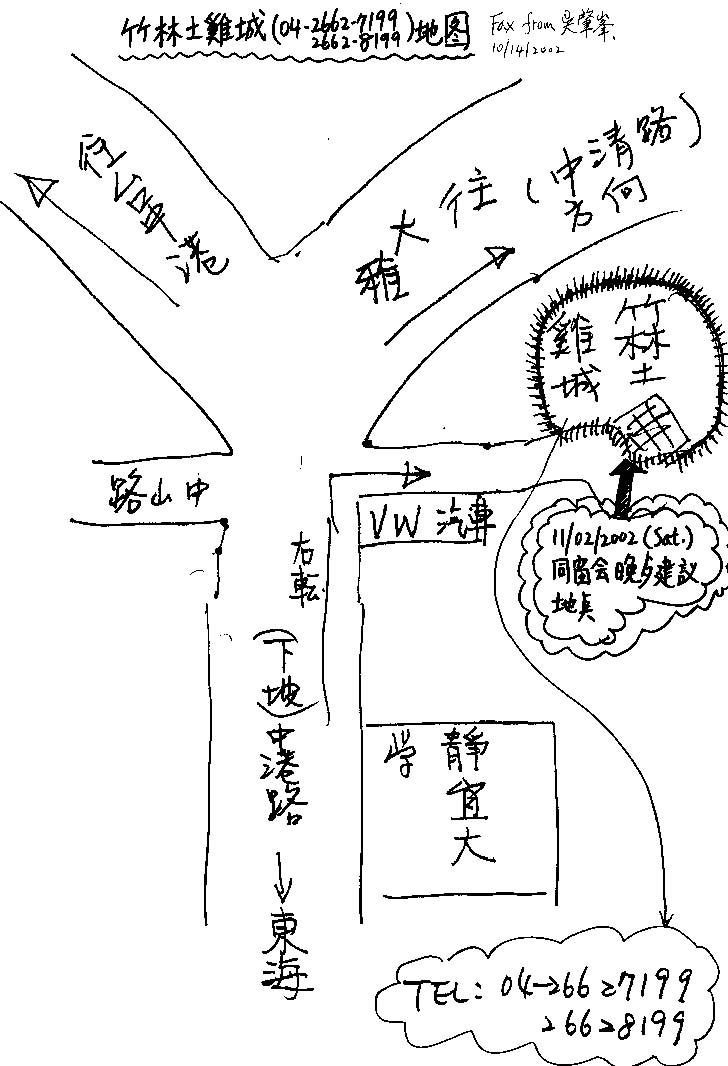 竹林土雞城(04-2662-7199
2662-8199)地图
Fax from 吳肇峯.
10/14/2002
往台中港
往(中清路)
方向
大
雅
竹林土
雞城
路山中
右転
VW 汽車
11/02/2002 (Sat.)
同窗会晚夛建議
地点
(下坡)中港路
→東海
靜宜大
学
TEL: 04-26627199
26628199